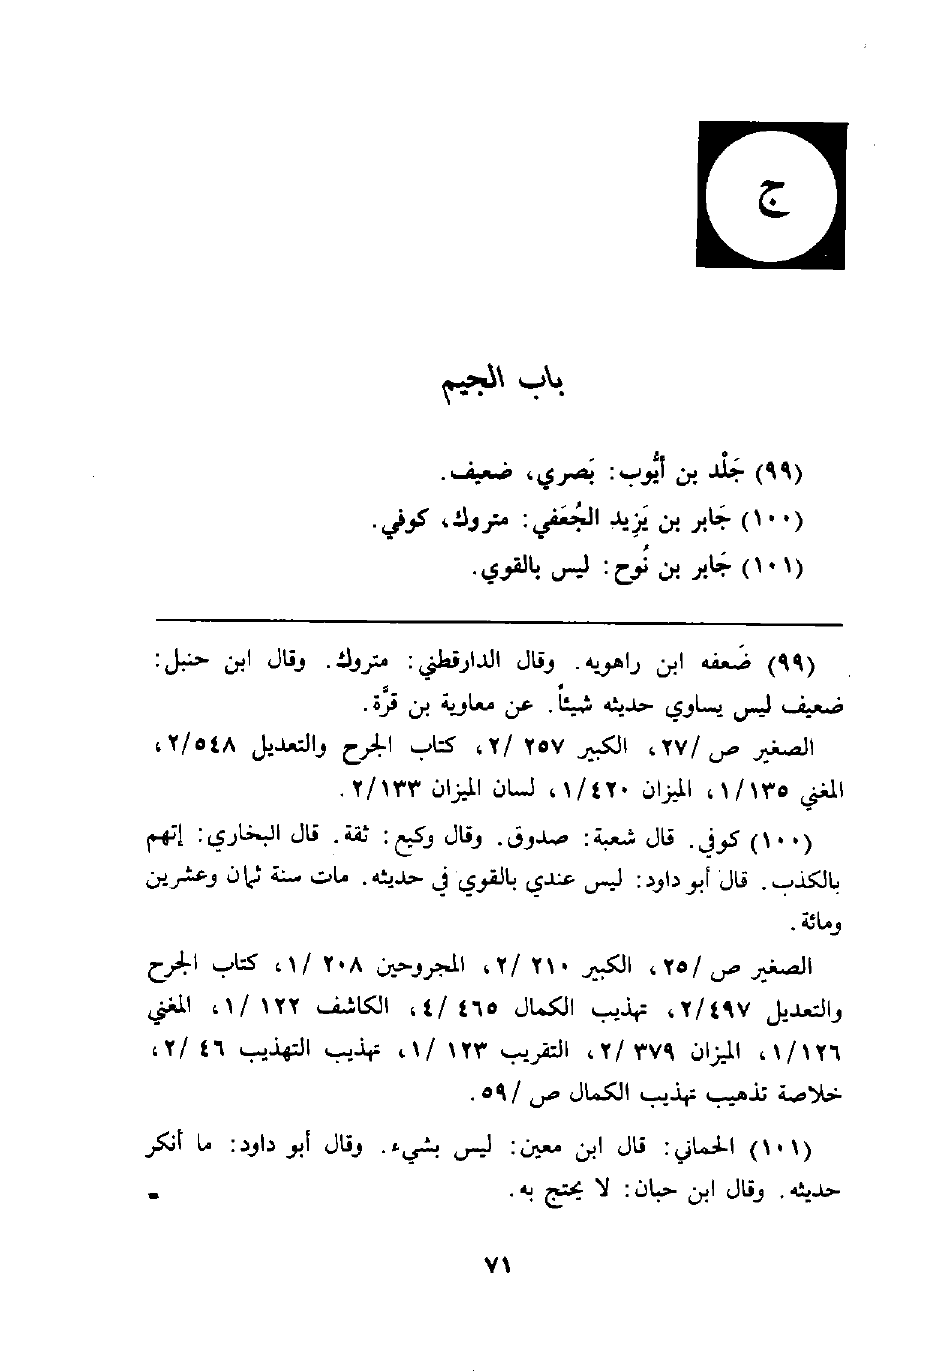 ج
باب الجيم
(٩٩) جَلْد بن أيُّوب: بَصري، ضعيف.
(١٠٠) جَابر بن يَزِيد الجُعَفي: متروك، كوفي.
(١٠١) جَابر بن نُوح: ليس بالقوي.
(٩٩) ضَعفه ابن راهويه. وقال الدارقطني: متروك. وقال ابن حنبل:
ضعيف ليس يساوي حديثه شيئاً. عن معاوية بن قرَّة.
الصغير ص /٢٧، الكبير ٢٥٧ /٢، كتاب الجرح والتعديل ٢/٥٤٨،
المغني ١/١٣٥، الميزان ١/٤٢٠، لسان الميزان ٢/١٣٣.
(١٠٠) كوفي. قال شعبة: صدوق. وقال وكيع: ثقة. قال البخاري: إتهم
بالكذب. قال أبو داود: ليس عندي بالقوي في حديثه. مات سنة ثمان وعشرين
ومائة.
الصغير ص /٢٥، الكبير ٢١٠ /٢، المجروحين ٢٠٨ /١، كتاب الجرح
والتعديل ٢/٤٩٧، تهذيب الكمال ٤٦٥ /٤، الكاشف ١٢٢ /١، المغني
١/١٢٦، الميزان ٣٧٩ /٢، التقريب ١٢٣ /١، تهذيب التهذيب ٤٦ /٢،
خلاصة تذهيب تهذيب الكمال ص /٥٩.
(١٠١) الحماني: قال ابن معين: ليس بشيء. وقال أبو داود: ما أنكر
حديثه. وقال ابن حبان: لا يحتج به. =
٧١